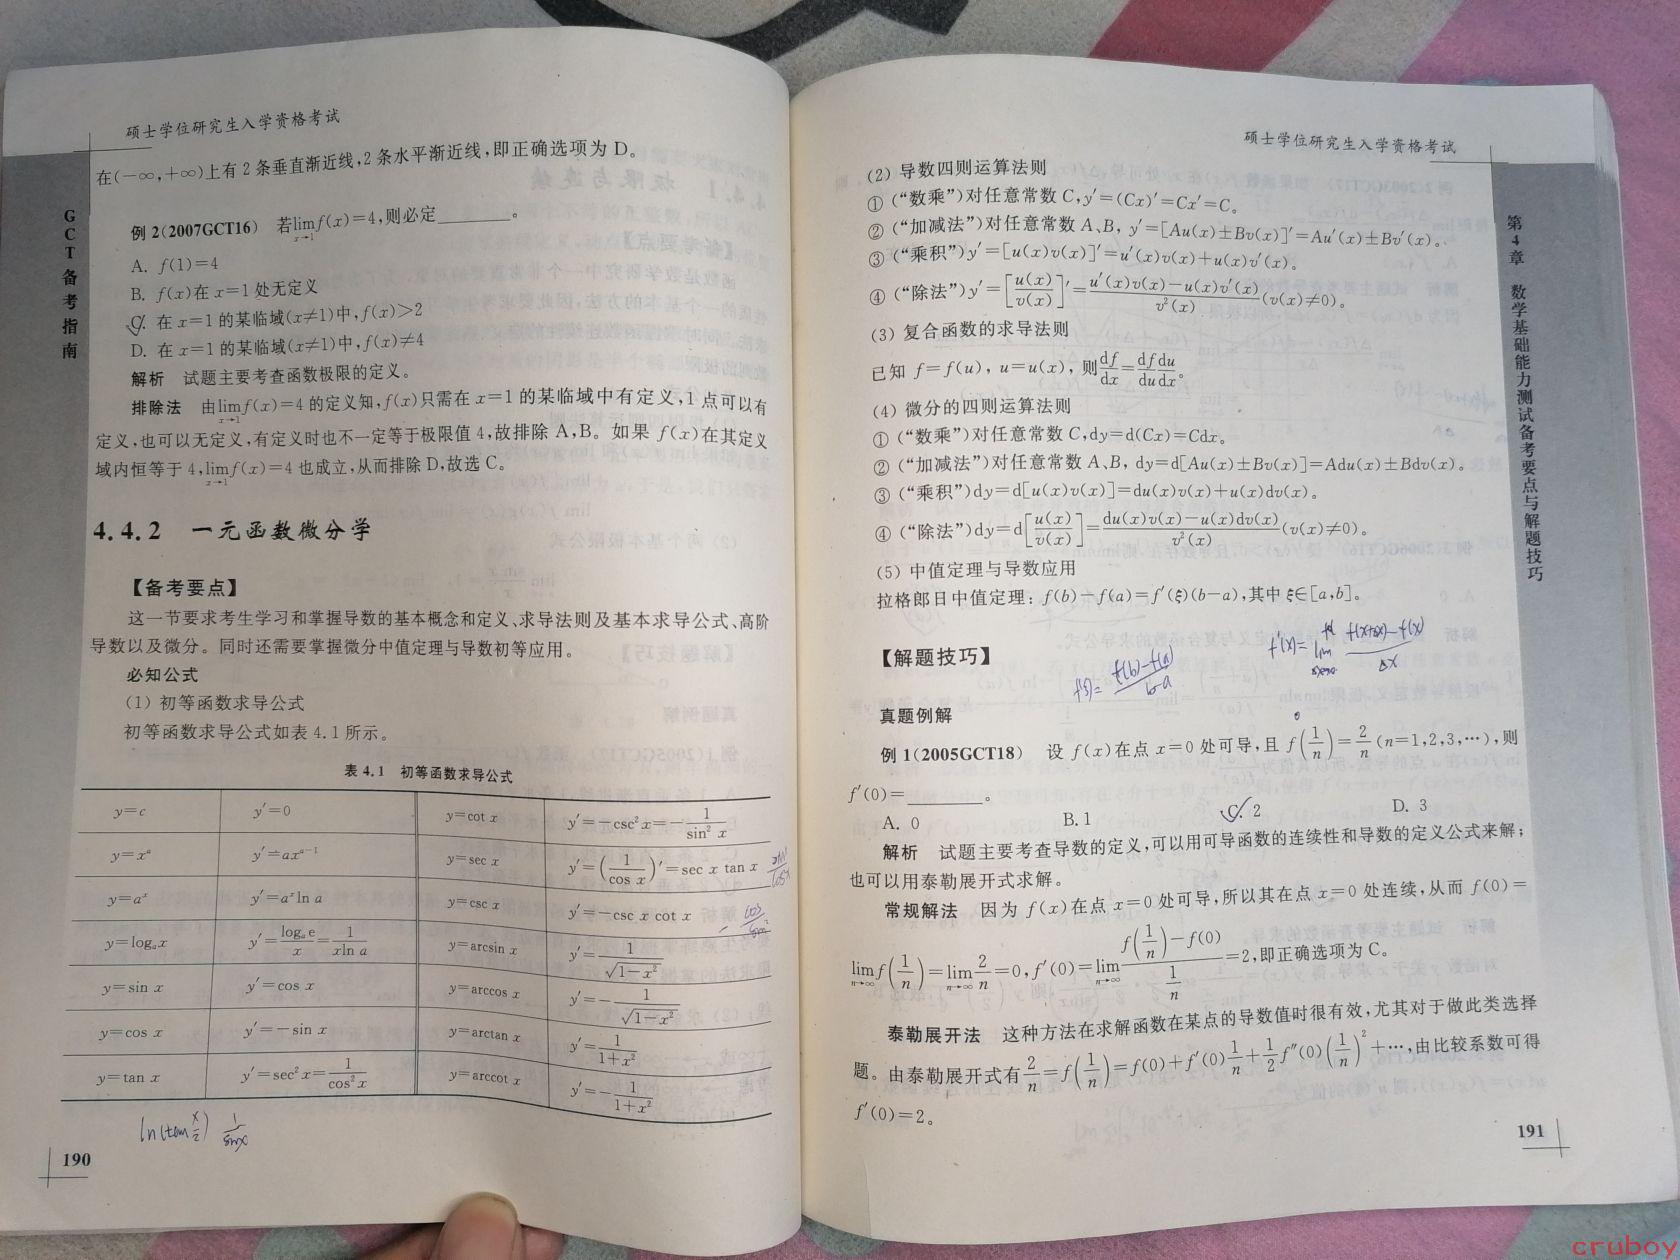 硕士学位研究生入学资格考试
GCT备考指南
在(−∞,+∞)上有2条垂直渐近线,2条水平渐近线,即正确选项为D。
例2(2007GCT16) 若lim_{x→1}f(x)=4,则必定________。
A. f(1)=4
B. f(x)在x=1处无定义
C. 在x=1的某临域(x≠1)中,f(x)>2
D. 在x=1的某临域(x≠1)中,f(x)≠4
解析 试题主要考查函数极限的定义。
排除法 由lim_{x→1}f(x)=4的定义知,f(x)只需在x=1的某临域中有定义,1点可以有
定义,也可以无定义,有定义时也不一定等于极限值4,故排除A,B。如果f(x)在其定义
域内恒等于4,lim_{x→1}f(x)=4也成立,从而排除D,故选C。
4.4.2 一元函数微分学
【备考要点】
这一节要求考生学习和掌握导数的基本概念和定义、求导法则及基本求导公式、高阶
导数以及微分。同时还需要掌握微分中值定理与导数初等应用。
必知公式
(1) 初等函数求导公式
初等函数求导公式如表4.1所示。
表4.1 初等函数求导公式
y=c y′=0 y=cot x y′=−csc²x=−1/sin² x
y=xᵃ y′=axᵃ⁻¹ y=sec x y′=(1/cos x)′=sec x tan x
y=aˣ y′=aˣln a y=csc x y′=−csc x cot x
y=logₐx y′=logₐe/x=1/(xln a) y=arcsin x y′=1/√(1−x²)
y=sin x y′=cos x y=arccos x y′=−1/√(1−x²)
y=cos x y′=−sin x y=arctan x y′=1/(1+x²)
y=tan x y′=sec²x=1/cos²x y=arccot x y′=−1/(1+x²)
ln(tan x/2) 1/sinx
190
硕士学位研究生入学资格考试
第4章 数学基础能力测试备考要点与解题技巧
(2) 导数四则运算法则
① (“数乘”)对任意常数C,y′=(Cx)′=Cx′=C。
② (“加减法”)对任意常数A、B, y′=[Au(x)±Bv(x)]′=Au′(x)±Bv′(x)。
③ (“乘积”)y′=[u(x)v(x)]′=u′(x)v(x)+u(x)v′(x)。
④ (“除法”)y′=[u(x)/v(x)]′=(u′(x)v(x)−u(x)v′(x))/v²(x)(v(x)≠0)。
(3) 复合函数的求导法则
已知 f=f(u), u=u(x), 则df/dx=df/du du/dx。
(4) 微分的四则运算法则
① (“数乘”)对任意常数C,dy=d(Cx)=Cdx。
② (“加减法”)对任意常数A、B, dy=d[Au(x)±Bv(x)]=Adu(x)±Bdv(x)。
③ (“乘积”)dy=d[u(x)v(x)]=du(x)v(x)+u(x)dv(x)。
④ (“除法”)dy=d[u(x)/v(x)]=(du(x)v(x)−u(x)dv(x))/v²(x)(v(x)≠0)。
(5) 中值定理与导数应用
拉格郎日中值定理: f(b)−f(a)=f′(ξ)(b−a),其中ξ∈[a,b]。
【解题技巧】
f′(ξ)=(f(b)−f(a))/(b−a) f′(x)=lim (f(x+Δx)−f(x))/Δx
真题例解
例1(2005GCT18) 设f(x)在点x=0处可导,且f(1/n)=2/n(n=1,2,3,⋯),则
f′(0)=________。
A. 0 B. 1 C. 2 D. 3
解析 试题主要考查导数的定义,可以用可导函数的连续性和导数的定义公式来解;
也可以用泰勒展开式求解。
常规解法 因为f(x)在点x=0处可导,所以其在点x=0处连续,从而f(0)=
lim_{n→∞}f(1/n)=lim_{n→∞}2/n=0,f′(0)=lim_{n→∞}(f(1/n)−f(0))/(1/n)=2,即正确选项为C。
泰勒展开法 这种方法在求解函数在某点的导数值时很有效,尤其对于做此类选择
题。由泰勒展开式有2/n=f(1/n)=f(0)+f′(0)1/n+1/2f″(0)(1/n)²+⋯,由比较系数可得
f′(0)=2。
191
cruboy